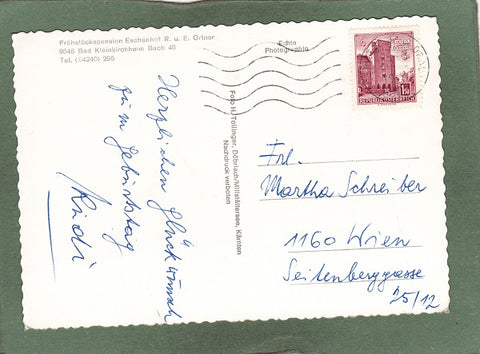 Frühstückspension Eschenhof R. u. E. Ortner
9546 Bad Kleinkirchheim Bach 45
Tel. (04240) 295
Echte
Photographie
REPUBLIK ÖSTERREICH
Herzlichen Glückwunsch
zum Geburtstag
Rudi
Foto H. Tollinger, Döbriach/Millstättersee, Kärnten
Nachdruck verboten
Frl.
Martha Schreiber
1160 Wien
Seitenberggasse
25/12